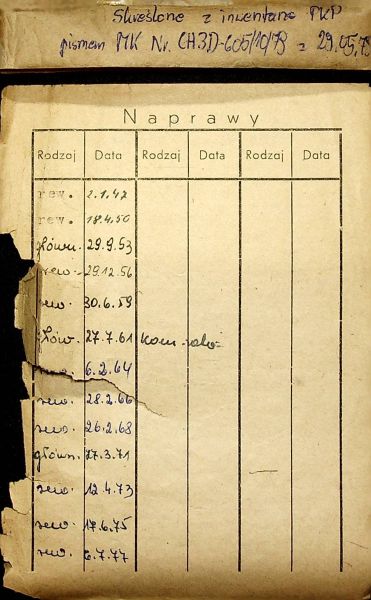 Skreślono z inwentarza PKP
pismem MK Nr. CH3D-605/10/78 z 29.05.78
Naprawy
Rodzaj Data Rodzaj Data Rodzaj Data
rew. 2.1.47
rew. 18.4.50
główn. 29.9.53
rew. 29.12.56
rew. 30.6.59
głów. 27.7.61
6.2.64
rew. 28.2.66
rew. 26.2.68
główn. 27.3.71
rew. 12.4.73
rew. 17.6.75
rew. 6.7.77